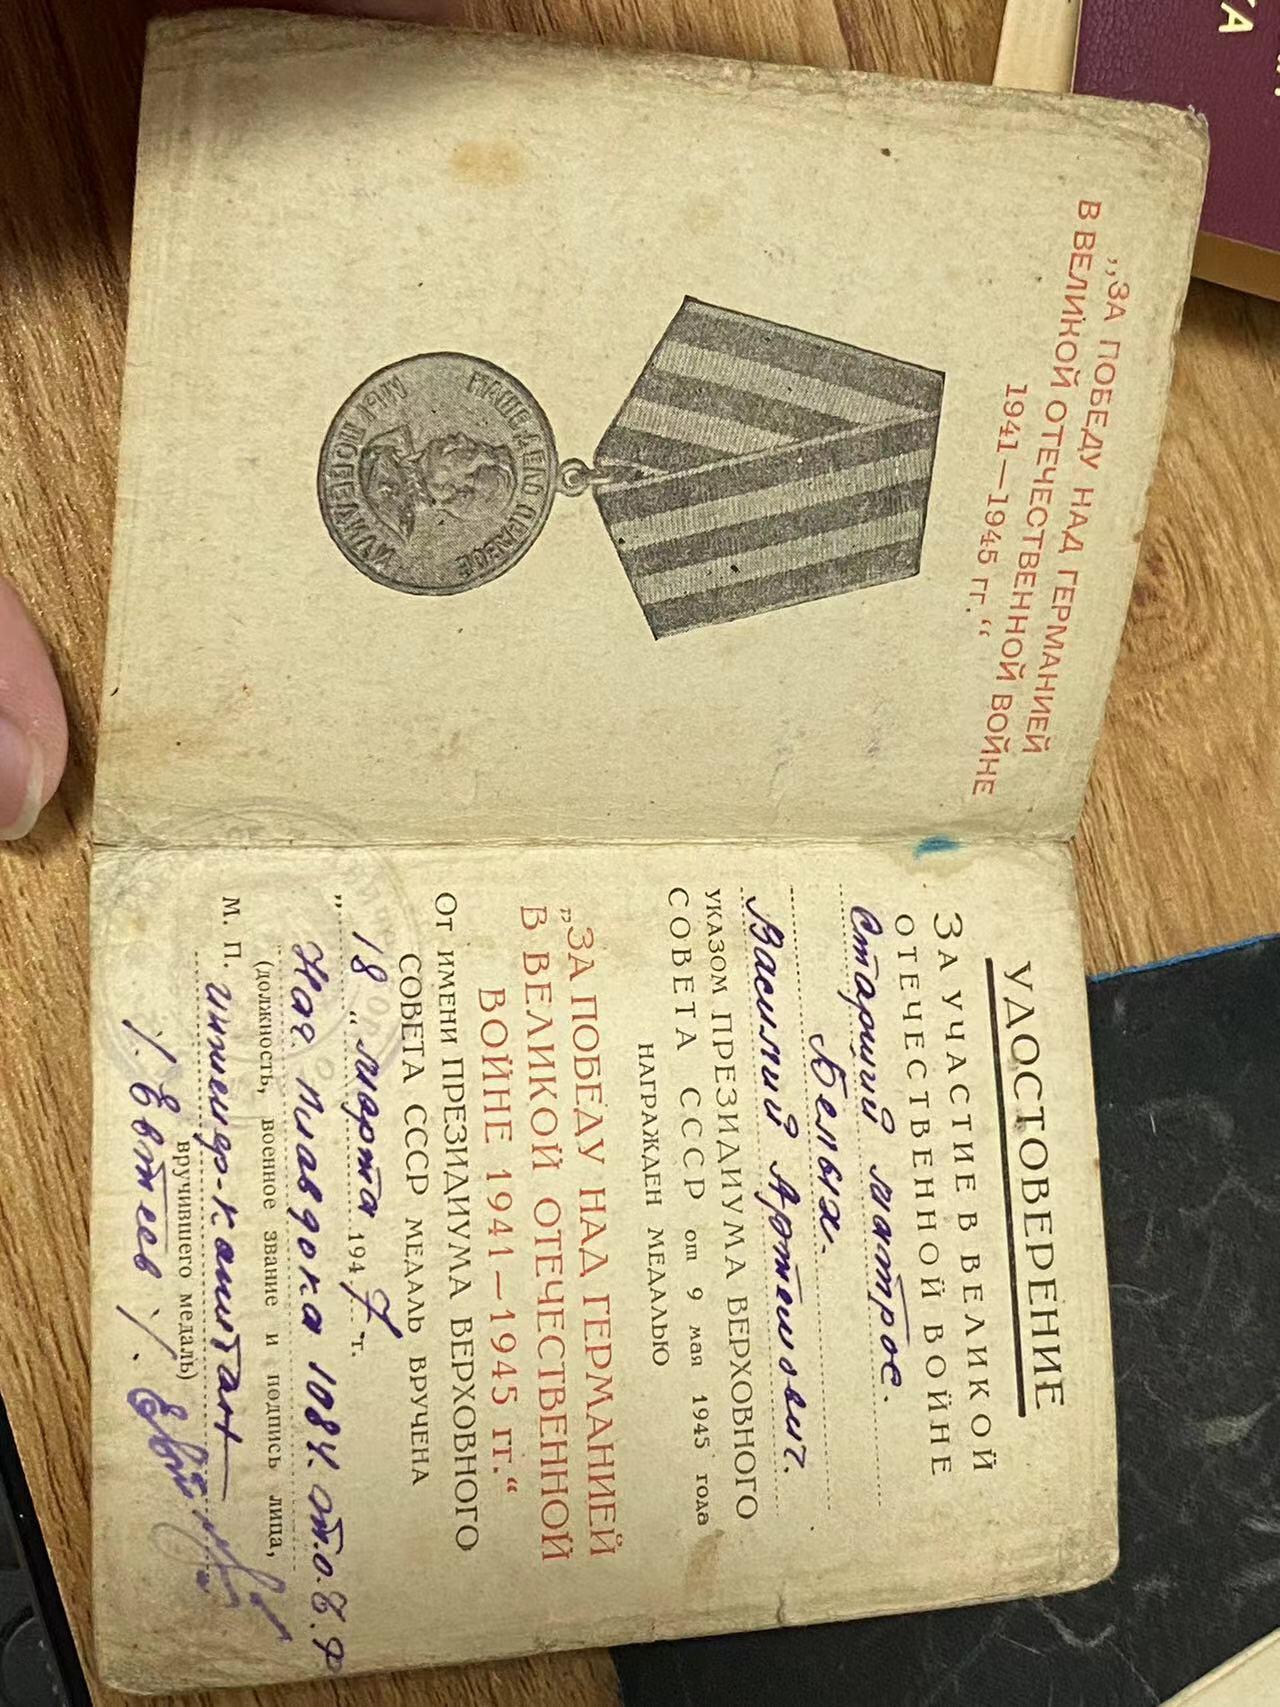 „ЗА ПОБЕДУ НАД ГЕРМАНИЕЙ
В ВЕЛИКОЙ ОТЕЧЕСТВЕННОЙ ВОЙНЕ
1941—1945 гг.“
НАШЕ ДЕЛО ПРАВОЕ
МЫ ПОБЕДИЛИ
УДОСТОВЕРЕНИЕ
ЗА УЧАСТИЕ В ВЕЛИКОЙ
ОТЕЧЕСТВЕННОЙ ВОЙНЕ
старший матрос.
Белых.
Василий Артемович.
УКАЗОМ ПРЕЗИДИУМА ВЕРХОВНОГО
СОВЕТА СССР от 9 мая 1945 года
НАГРАЖДЕН МЕДАЛЬЮ
„ЗА ПОБЕДУ НАД ГЕРМАНИЕЙ
В ВЕЛИКОЙ ОТЕЧЕСТВЕННОЙ
ВОЙНЕ 1941—1945 гг.“
ОТ ИМЕНИ ПРЕЗИДИУМА ВЕРХОВНОГО
СОВЕТА СССР МЕДАЛЬ ВРУЧЕНА
„18“ марта 1947 г.
Нач. плавдока
(должность, военное звание и подпись лица,
М. П. инженер-капитан
вручившего медаль)
/. Евтеев /.